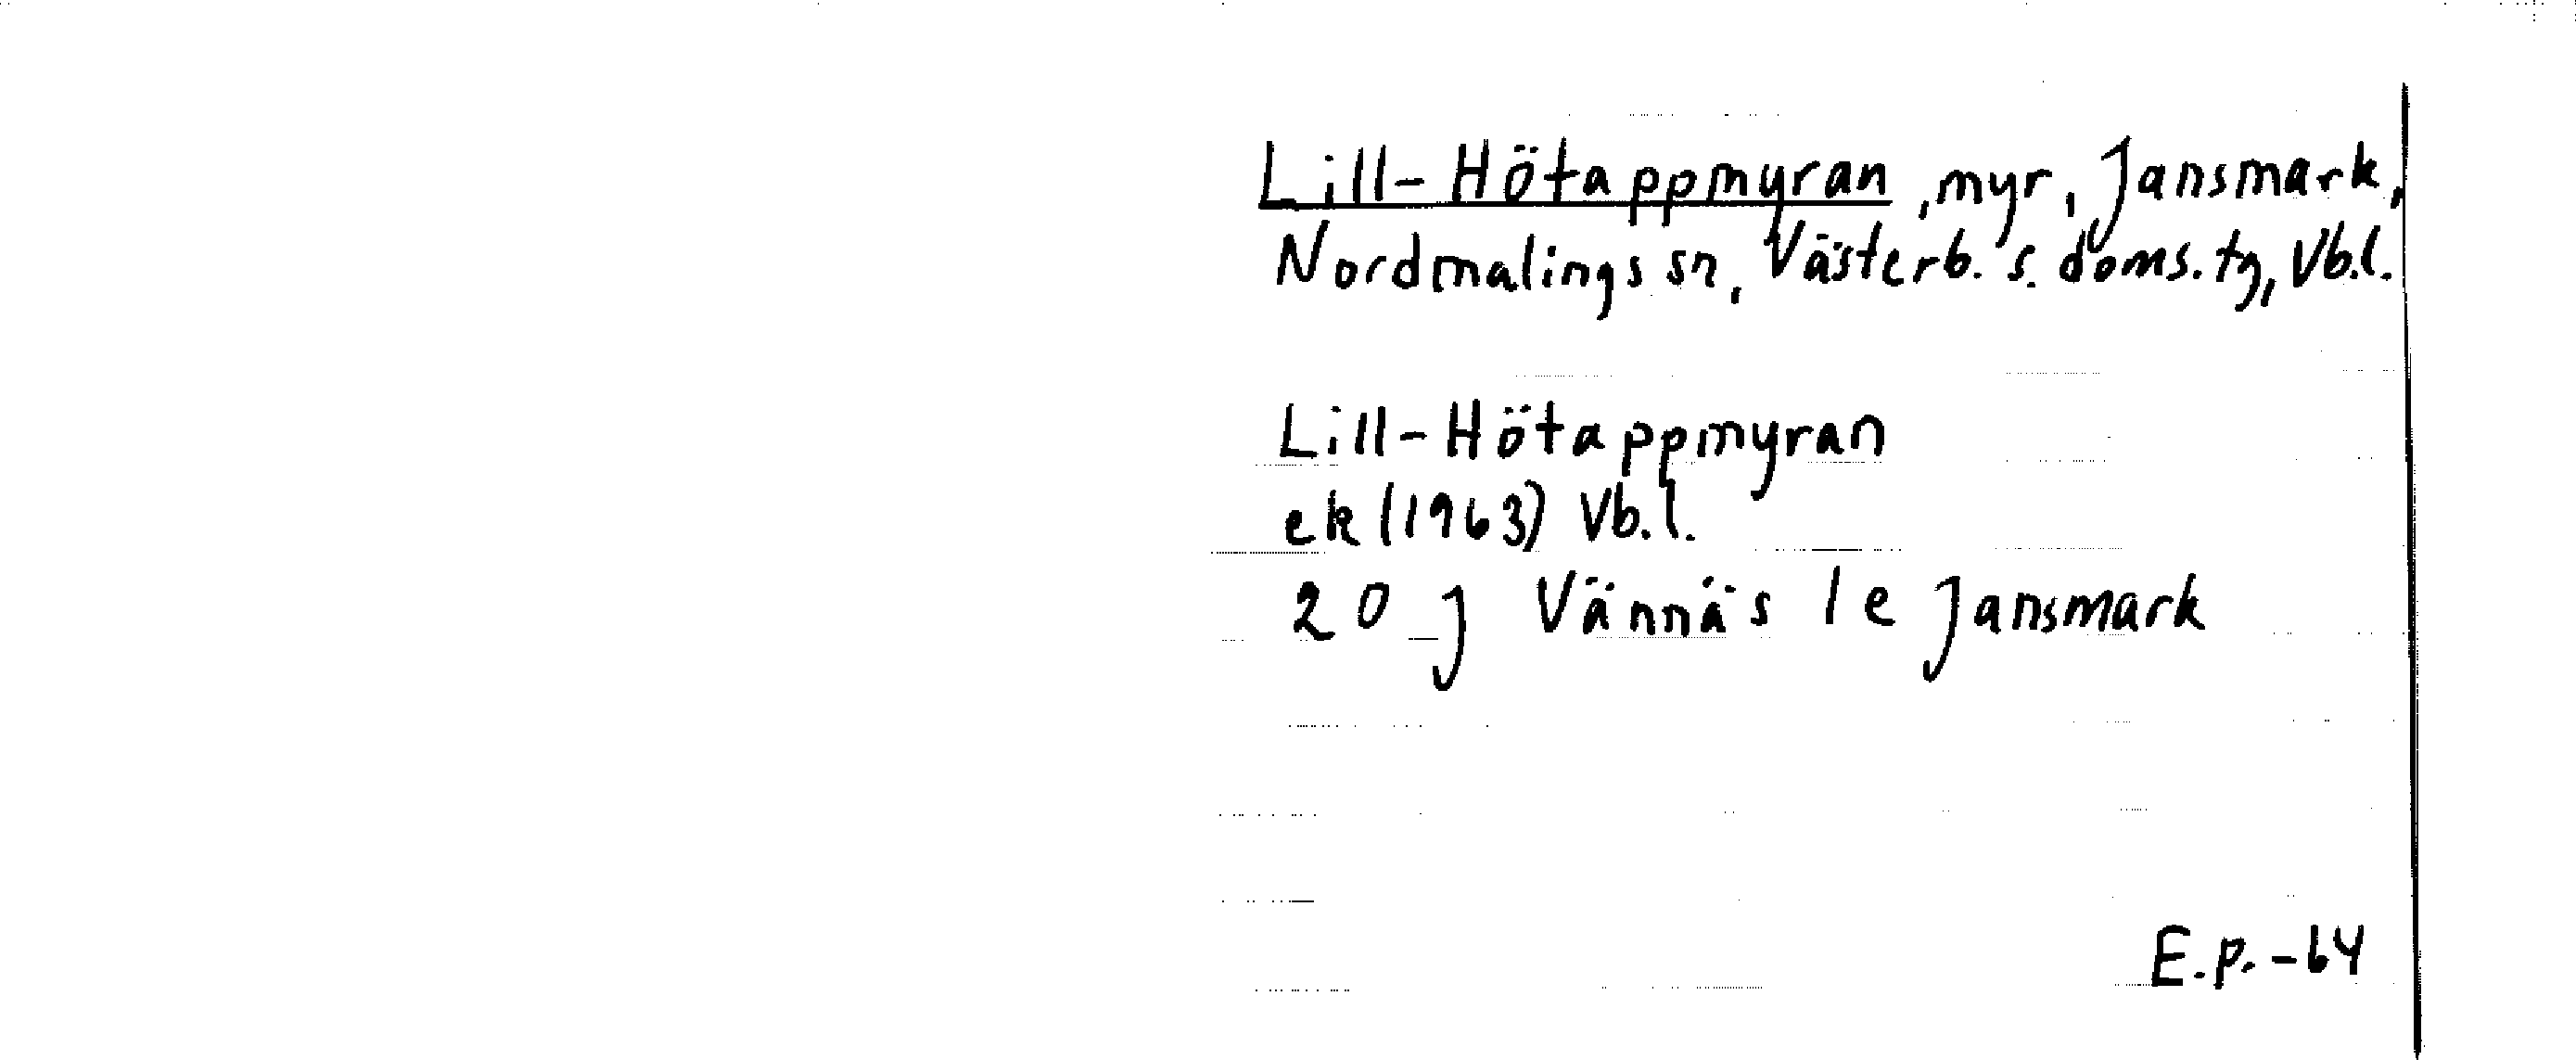 Lill-Hötappmyran, myr, Jansmark,
Nordmalings sn, Västerb. s. doms. tg, Vb.l.
Lill-Hötappmyran
ek (1963) Vb.l.
20 J Vännäs 1e Jansmark
E.p. -64